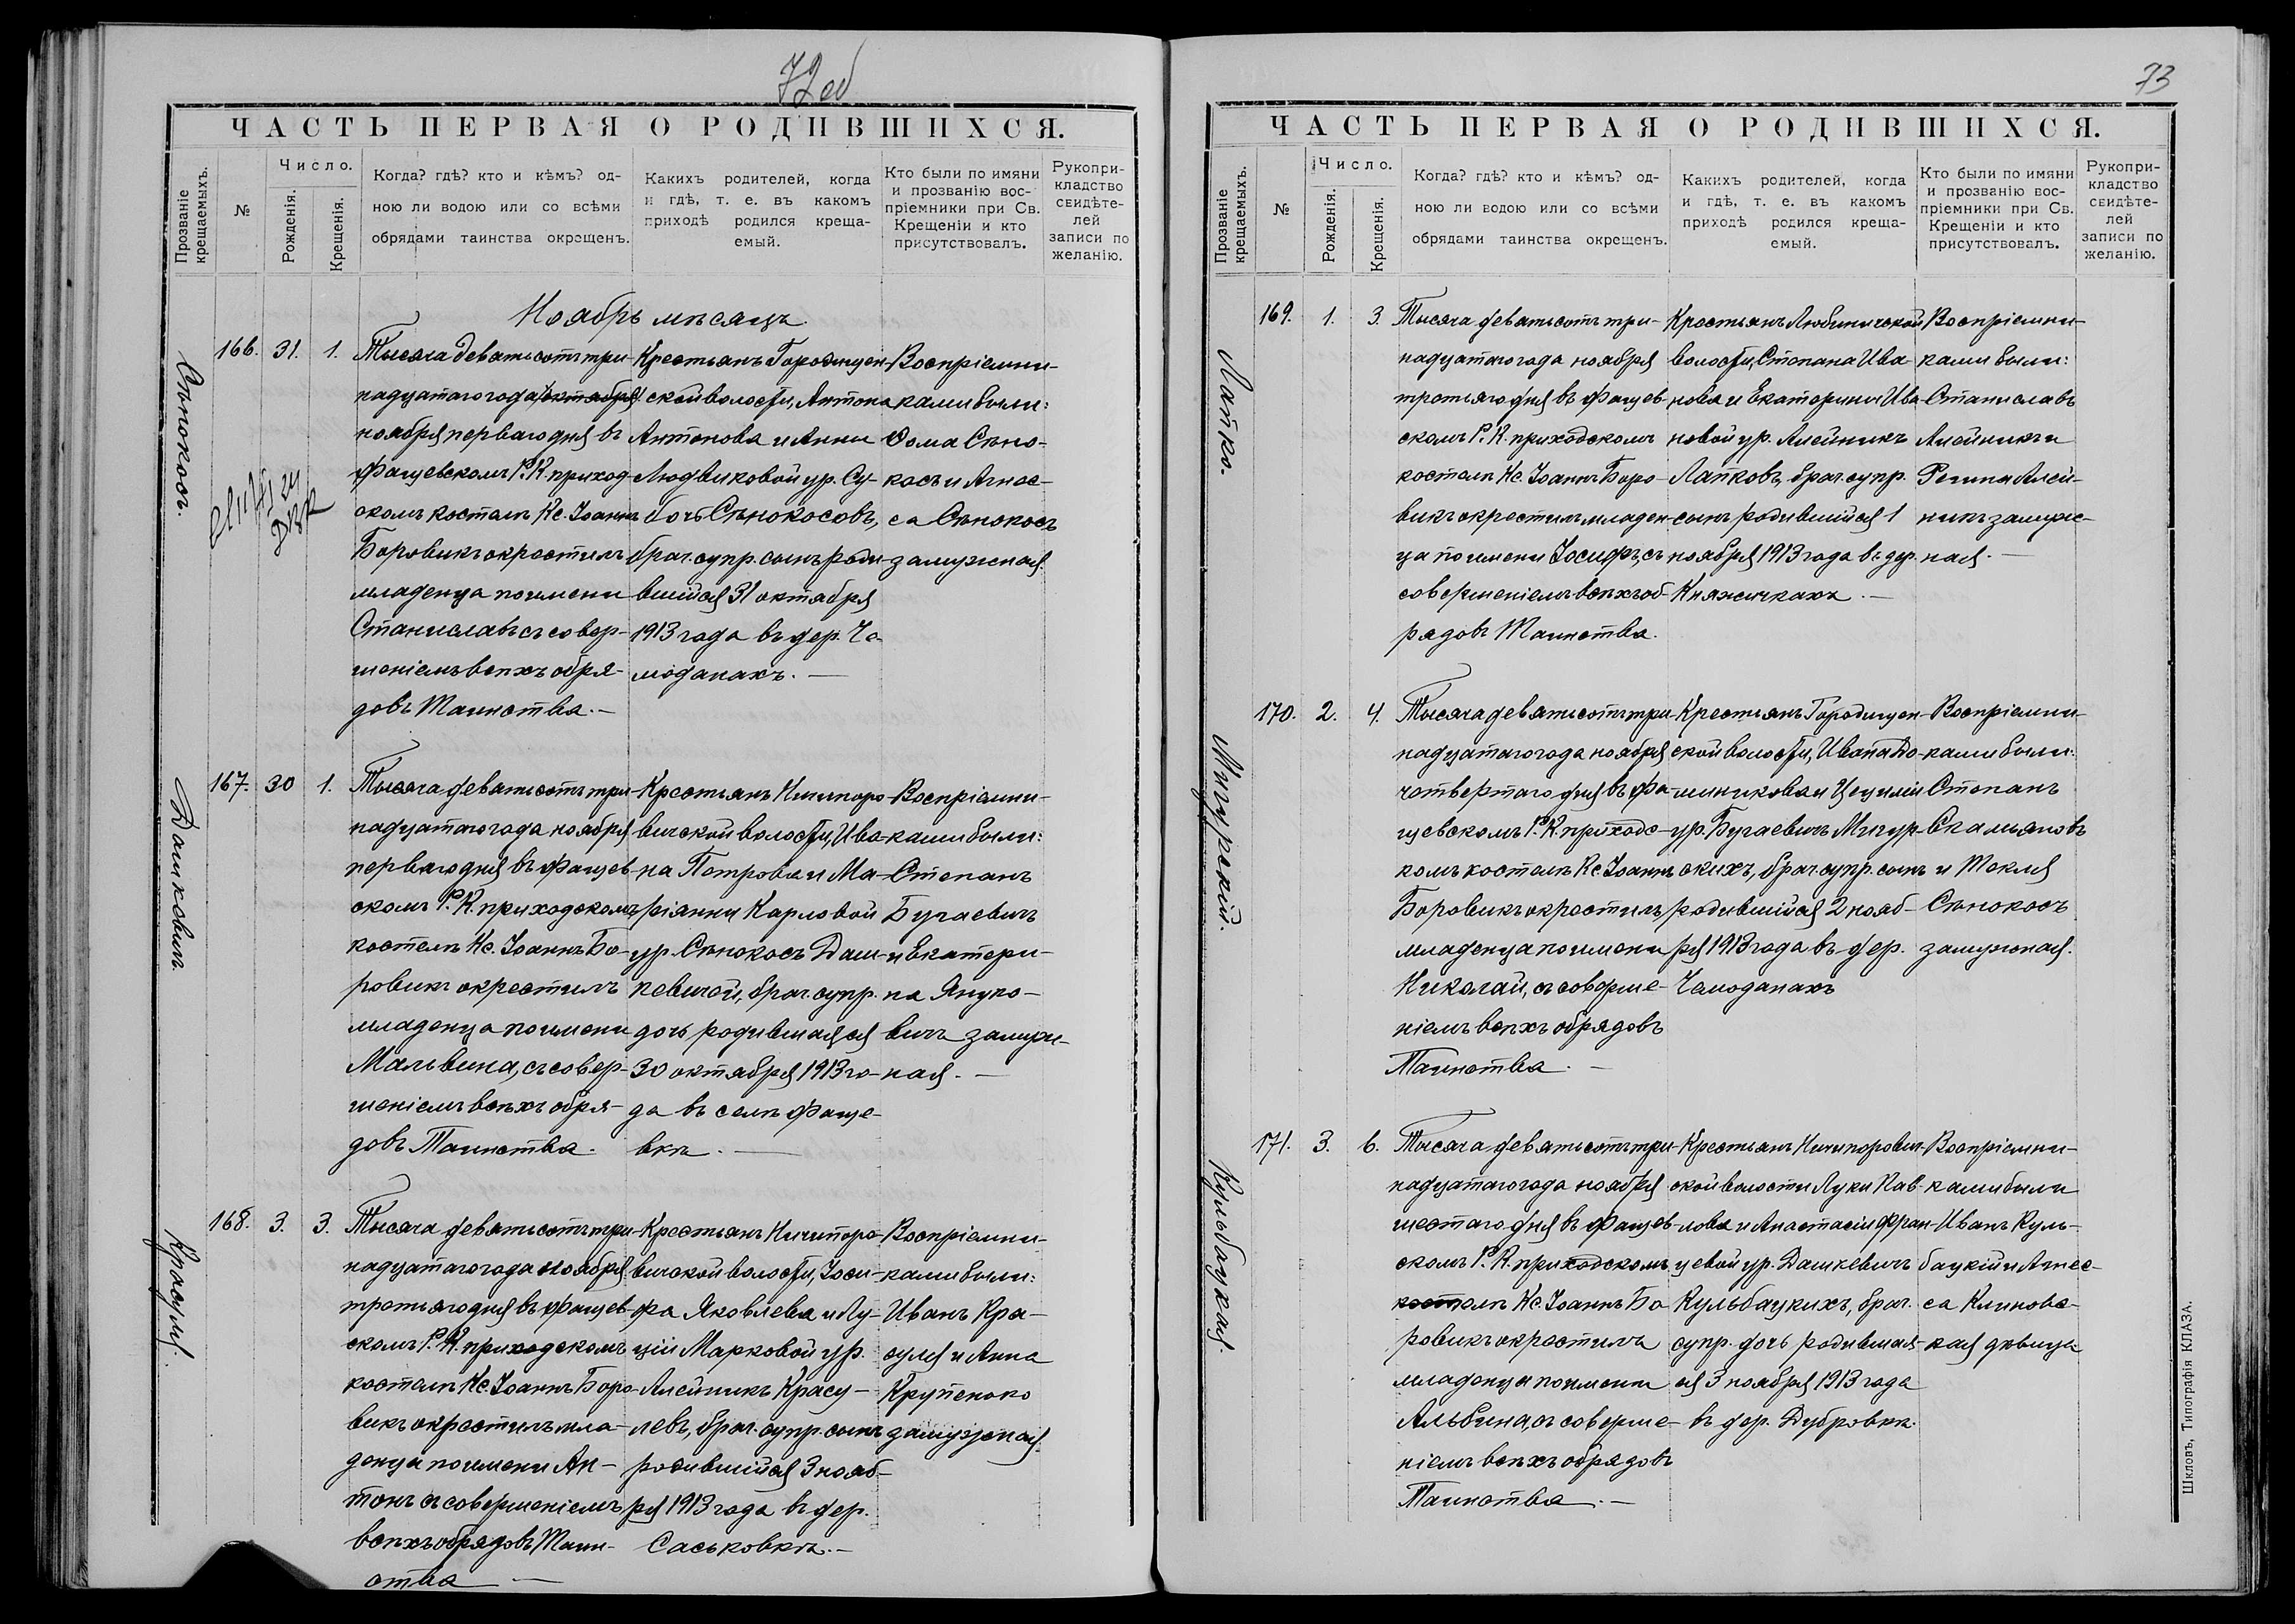 72 об
ЧАСТЬ ПЕРВАЯ О РОДИВШИХСЯ.
Прозваніе крещаемыхъ.
№
Число.
Рожденія.
Крещенія.
Когда? гдѣ? кто и кѣмъ? од-
ною ли водою или со всѣми
обрядами таинства окрещенъ.
Какихъ родителей, когда
и гдѣ, т. е. въ какомъ
приходѣ родился креща-
емый.
Кто были по имяни
и прозванію вос-
пріемники при Св.
Крещеніи и кто
присутствовалъ.
Рукопри-
кладство
свидѣте-
лей
записи по
желанію.
Ноябрь мѣсяцъ.
Сѣнокосъ.
166. 31. 1.
Тысяча девятьсотъ три-
надцатаго года октября
ноября перваго дня въ
Фащевскомъ Р. К. приход-
скомъ костелѣ Кс. Іоаннъ
Боровикъ окрестилъ
младенца по имени
Станиславъ съ совер-
шеніемъ всѣхъ обря-
довъ Таинства.-
Крестьянъ Городищен-
ской волости, Антона
Антонова и Анны
Людвиковой ур. Су-
бочь Сѣнокосовъ,
брач. супр. сынъ роди-
вшійся 31 октября
1913 года въ дер. Че-
моданахъ.-
Воспріемни-
ками были:
Ѳома Сѣно-
косъ и Агнес-
са Сѣнокосъ
замужная.
Дашкевичъ
167. 30 1.
Тысяча девятьсотъ три-
надцатаго года ноября
перваго дня въ Фащев-
скомъ Р. К. приходскомъ
костелѣ Кс. Іоаннъ Бо-
ровикъ окрестилъ
младенца по имени
Мальвина, съ совер-
шеніемъ всѣхъ обря-
довъ Таинства.
Крестьянъ Ничипоро-
вичской волости, Ива-
на Петрова и Ма-
ріанны Карловой
ур. Сѣнокосъ Даш-
кевичей, брач. супр.
дочь родившаяся
30 октября 1913 го-
да въ селѣ Фаще-
вкѣ.-
Воспріемни-
ками были:
Степанъ
Бугаевичъ
и Екатери-
на Януко-
вичъ замуж-
ная.-
Красуля.
168. 3. 3.
Тысяча девятьсотъ три-
надцатаго года ноября
третьяго дня въ Фащев-
скомъ Р. К. приходскомъ
костелѣ Кс. Іоаннъ Боро-
викъ окрестилъ мла-
денца по имени Ан-
тонъ съ совершеніемъ
всѣхъ обрядовъ Таин-
ства-
Крестьянъ Ничипоро-
вичской волости, Іоси-
фа Яковлева и Лу-
ціи Марковой ур.
Алейникъ Красу-
левъ, брач. супр. сынъ
родившійся 3 нояб-
ря 1913 года въ дер.
Саськовкѣ.-
Воспріемни-
ками были:
Иванъ Кра-
суля и Анна
Крупенько
замужная.
73
ЧАСТЬ ПЕРВАЯ О РОДИВШИХСЯ.
Прозваніе крещаемыхъ.
№
Число.
Рожденія.
Крещенія.
Когда? гдѣ? кто и кѣмъ? од-
ною ли водою или со всѣми
обрядами таинства окрещенъ.
Какихъ родителей, когда
и гдѣ, т. е. въ какомъ
приходѣ родился креща-
емый.
Кто были по имяни
и прозванію вос-
пріемники при Св.
Крещеніи и кто
присутствовалъ.
Рукопри-
кладство
свидѣте-
лей
записи по
желанію.
Лапко.
169. 1. 3.
Тысяча девятьсотъ три-
надцатаго года ноября
третьяго дня въ Фащев-
скомъ Р. К. приходскомъ
костелѣ Кс. Іоаннъ Боро-
викъ окрестилъ младен-
ца по имени Іосифъ, съ
совершеніемъ всѣхъ об-
рядовъ Таинства.
Крестьянъ Любиничской
волости, Степана Ива-
нова и Екатерины Ива-
новой ур. Алейникъ
Лапковъ, брач. супр.
сынъ родившійся 1
ноября 1913 года въ дер.
Княжичахъ.-
Воспріемни-
ками были:
Станиславъ
Алейникъ и
Регина Алей-
никъ замуж-
ная.-
Мигурскій.
170. 2. 4.
Тысяча девятьсотъ три-
надцатаго года ноября
четвертаго дня въ Фа-
щевскомъ Р. К. приходс-
комъ костелѣ Кс. Іоаннъ
Боровикъ окрестилъ
младенца по имени
Николай, съ соверше-
ніемъ всѣхъ обрядовъ
Таинства.-
Крестьянъ Городищен-
ской волости, Ивана До-
миникова и Цециліи
ур. Бугаевичъ Мигур-
скихъ, брач. супр. сынъ
родившійся 2 нояб-
ря 1913 года въ дер.
Чемоданахъ
Воспріемни-
ками были:
Степанъ
и Текля
Сѣнокосъ
замужная.
Кульбацкая.
171. 3. 6.
Тысяча девятьсотъ три-
надцатаго года ноября
шестаго дня въ Фащев-
скомъ Р. К. приходскомъ
костелѣ Кс. Іоаннъ Бо-
ровикъ окрестилъ
младенца по имени
Альбина, съ соверше-
ніемъ всѣхъ обрядовъ
Таинства.-
Крестьянъ Ничипорович-
ской волости Луки Пав-
лова и Анастасіи Фран-
цевой ур. Дашкевичъ
Кульбацкихъ, брач.
супр. дочь родившая-
ся 3 ноября 1913 года
въ дер. Дубровкѣ.
Воспріемни-
ками были
Иванъ Куль-
бацкій и Агнес-
са Клинов-
кая дѣвица
Шкловъ, Типографія КЛАЗА.